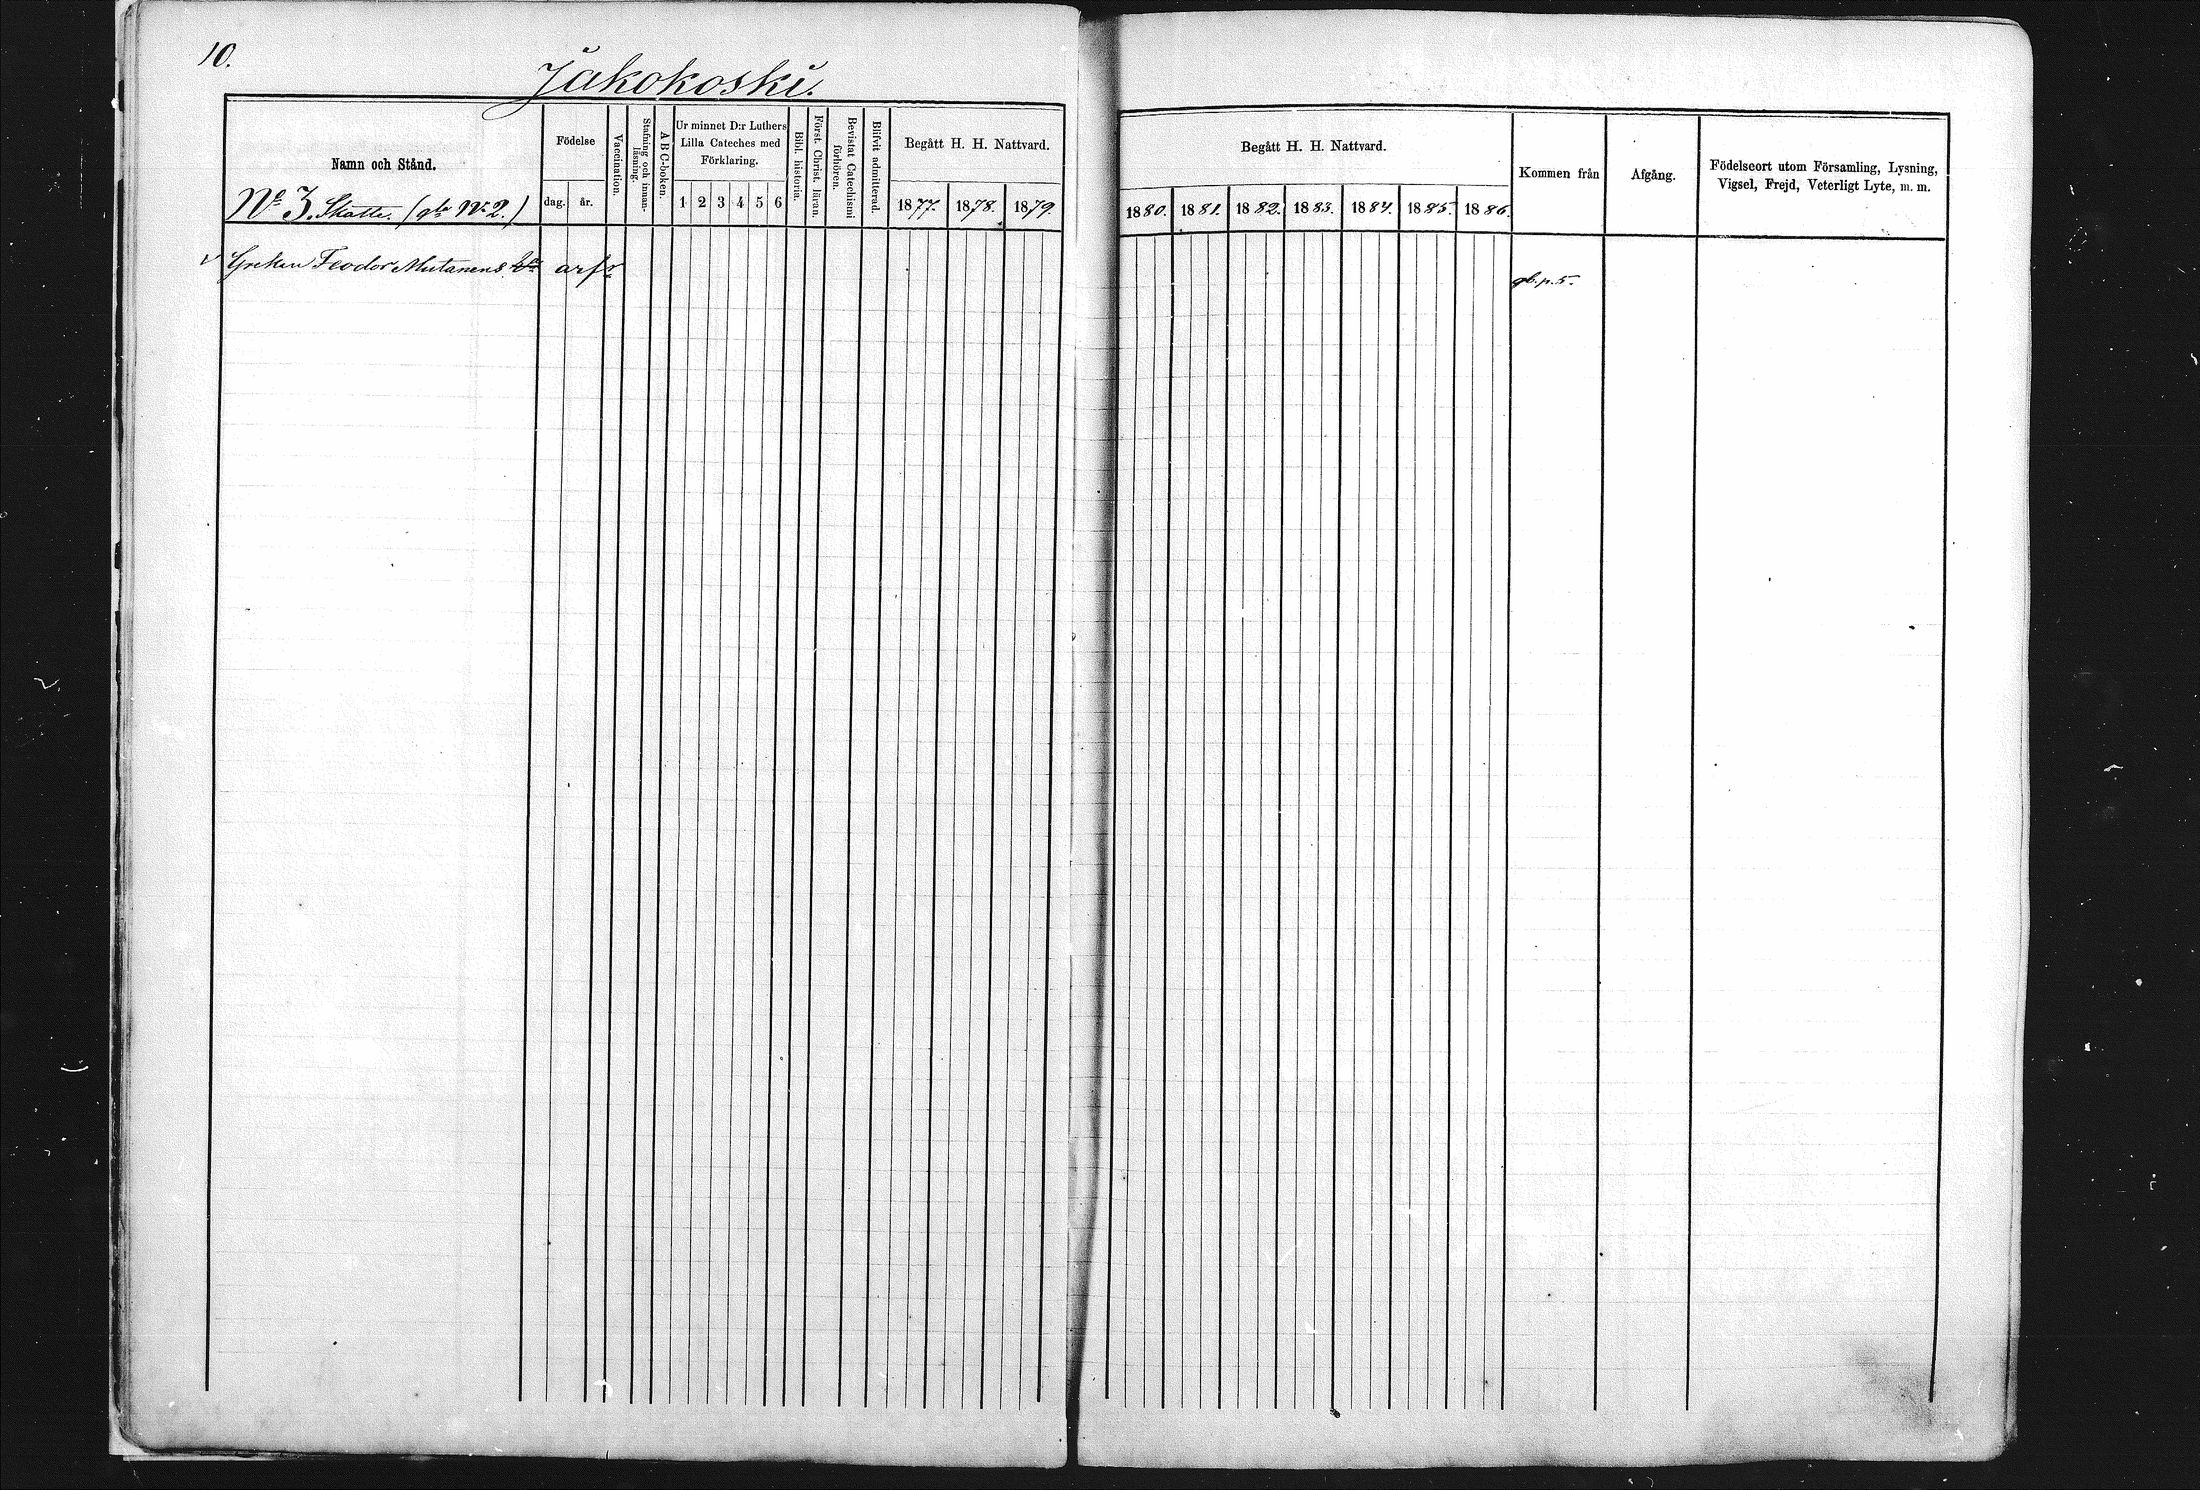 10.
Jakokoski.
Namn och Stånd.
Födelse
dag. år.
Vaccination.
Stafning och innanläsning.
A B C-boken.
Ur minnet D:r Luthers
Lilla Cateches med
Förklaring.
1 2 3 4 5 6
Bibl. historia.
Först. Christ. läran.
Bevistat Catechismi förhören.
Blifvit admitterad.
Begått H. H. Nattvard.
1877. 1878. 1879.
Begått H. H. Nattvard.
1880. 1881. 1882. 1883. 1884. 1885. 1886.
Kommen från
Afgång.
Födelseort utom Församling, Lysning,
Vigsel, Frejd, Veterligt Lyte, m. m.
No 3. Skatte. (gla No 2.)
Greken Feodor Mutanens arfr
gb. p. 5.